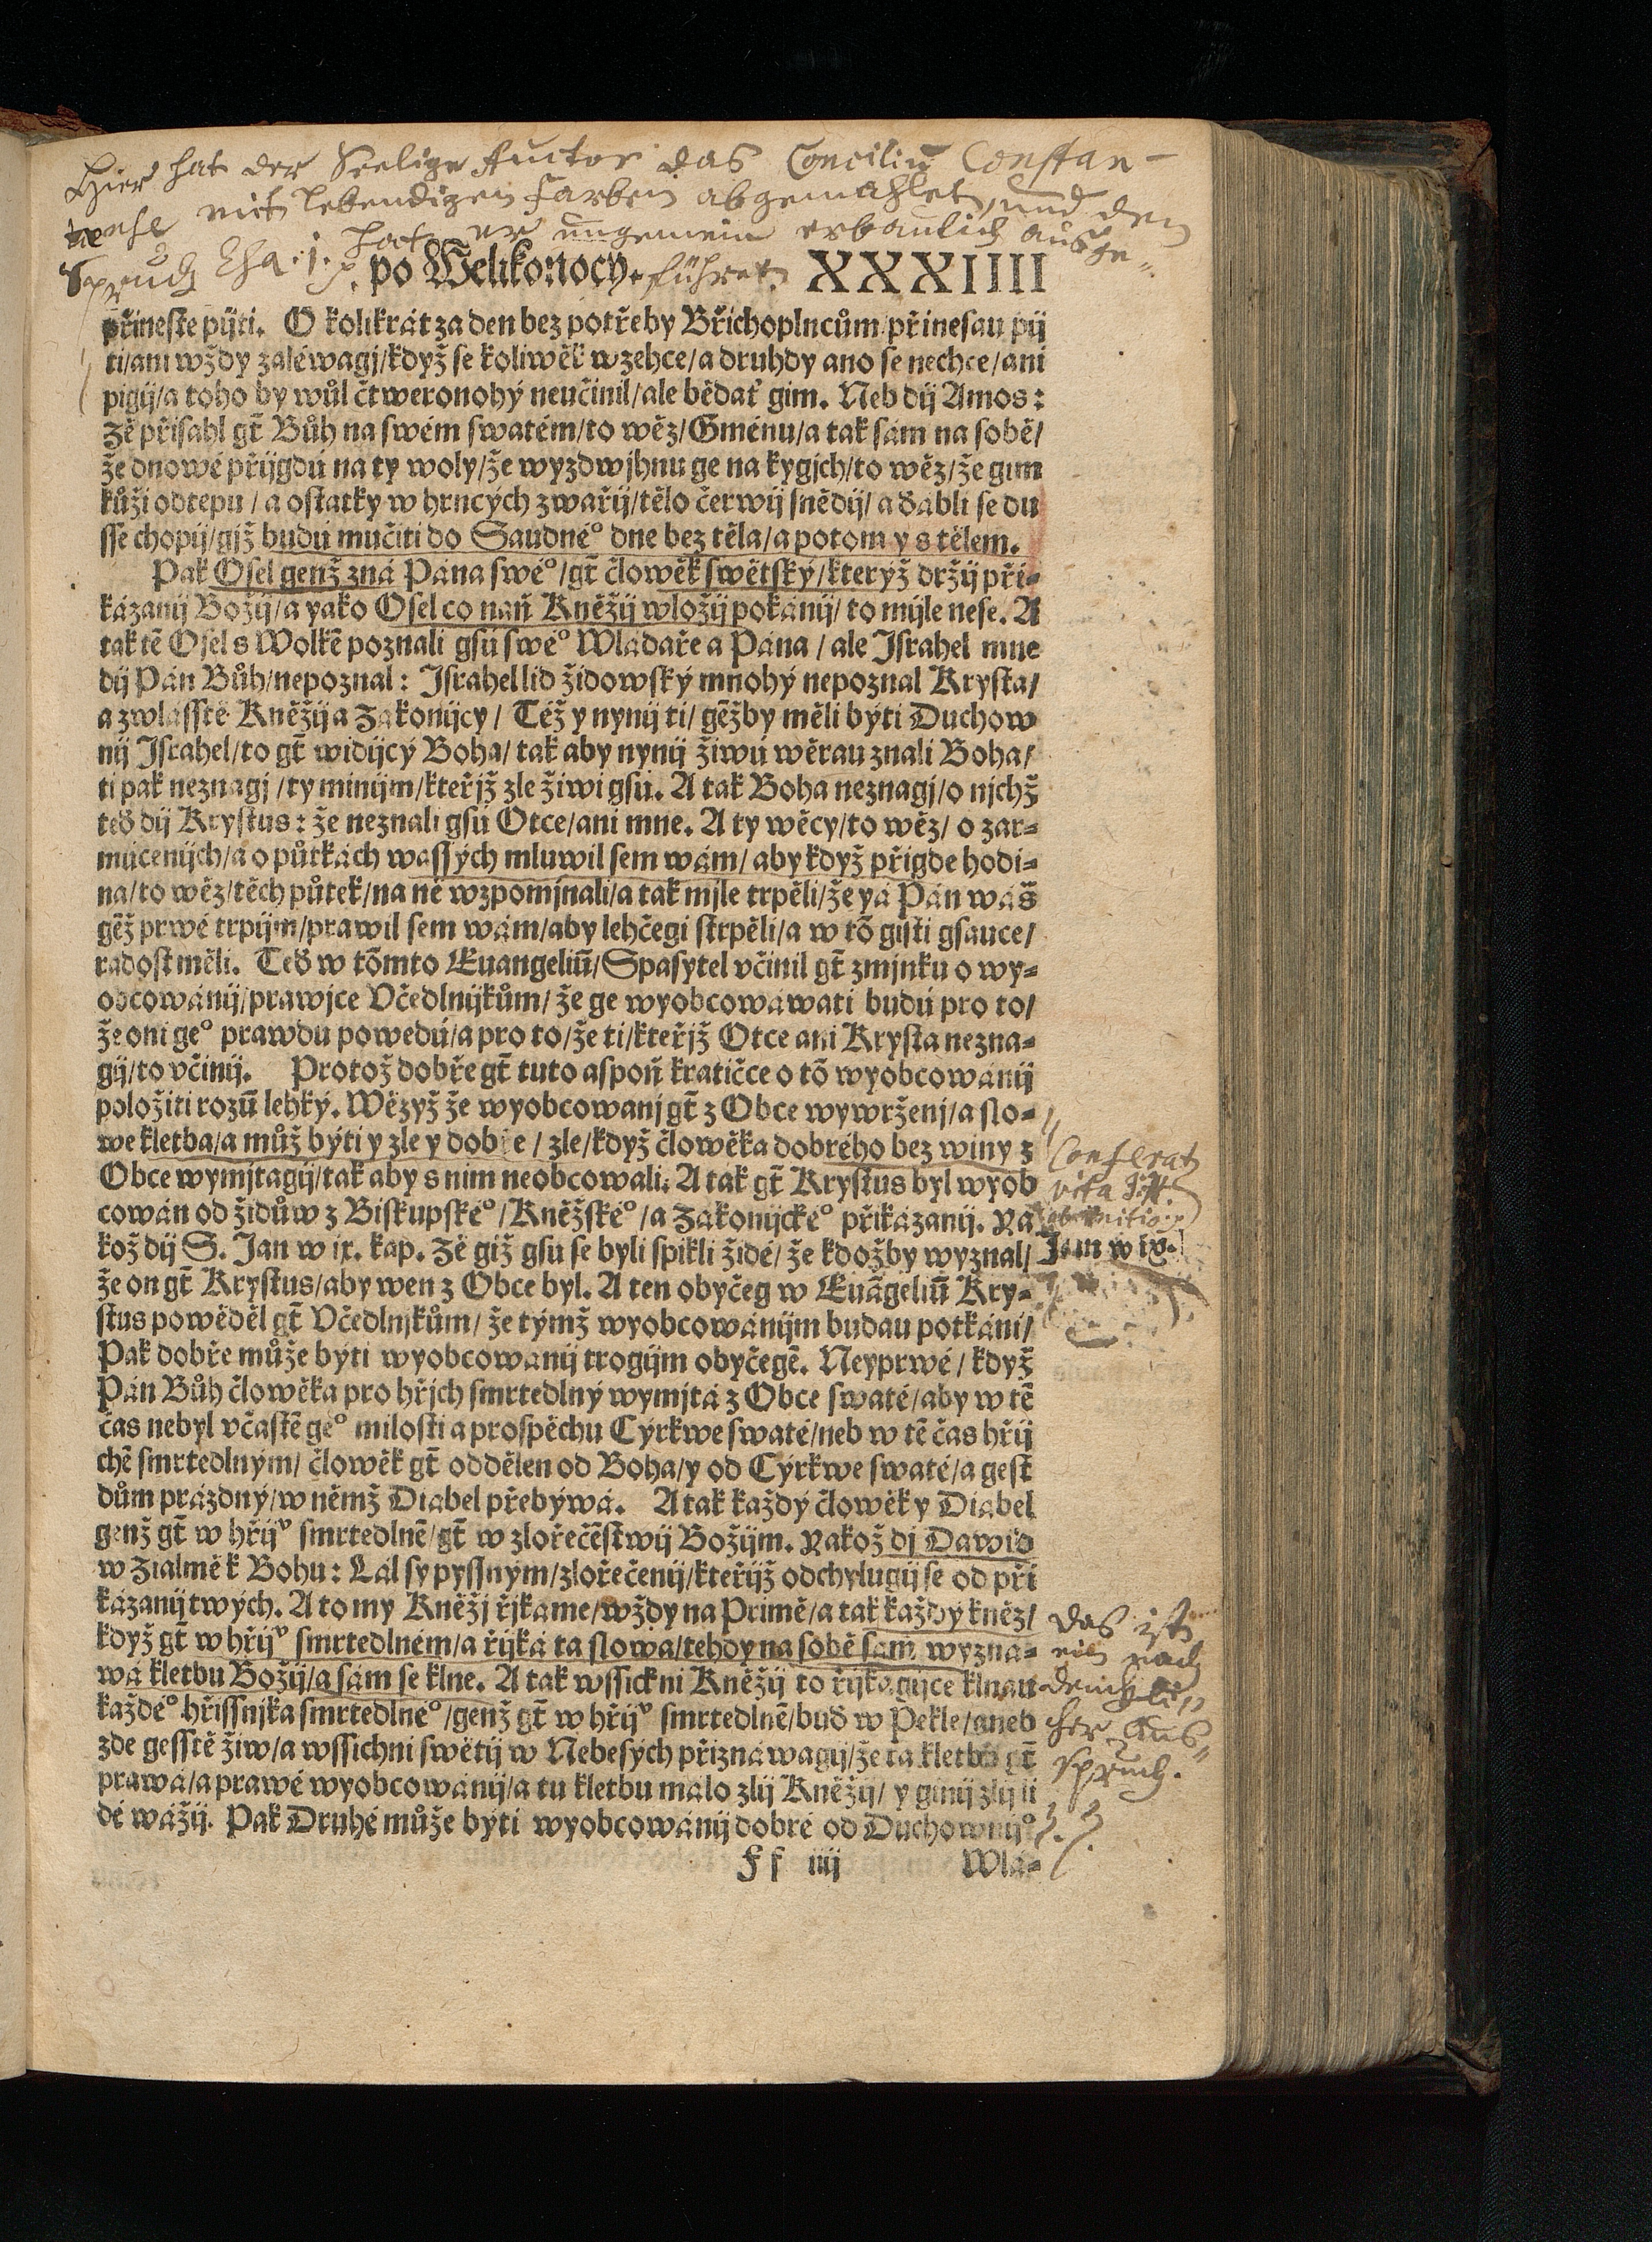 Hier hat der Seelige Auctor das Conciliū Constan-
tense mit lebendigen Farben abgemahlet, und den
Spruch Esa. 1. hat er ungemein erbaulich ausge-
po Welikonocy. führet. XXXIIII
přineste pijti. O kolikrát za den bez potřeby Břichoplncům/přinesau pij
ti/ani wždy zaléwagj/když se koliwěk w zehce/a druhdy ano se nechce/ani
pigij/a toho by wůl čtweronohý neučinil/ale bědať gim. Neb dij Amos:
Zě přisahl gt̄ Bůh na swém swatém/to wěz/Gménu/a tak sám na sobě/
že dnowé přijgdú na ty woly/že wyzdwjhnu ge na kygjch/to wěz/že gim
kůži odtepu/a ostatky w hrncých zwařij/tělo čerwij snědij/a ďábli se du
sse chopij/gjž budú mučiti do Saudnéº dne bez těla/a potom y s tělem.
Pak Osel genž zná Pána swéº/gt̄ člowěk swětský/kterýž držij při-
kázanij Božij/a yako Osel co naň Kněžij wložij pokánij/to mijle nese. A
tak tē Osel s Wolkē poznali gsú swéº Wládaře a Pána/ale Jsrahel mne
dij Pán Bůh/nepoznal: Jsrahel lid židowský mnohý nepoznal Krysta/
a zwlásstě Kněžij a Zákonijcy/ Též y nynij ti/gēžby měli býti Duchow
nij Jsrahel/to gt̄ widijcý Boha/tak aby nynij žiwú wěrau znali Boha/
ti pak neznagj/ty mínijm/kteřjž zle žiwi gsú. A tak Boha neznagj/o njchž
teď dij Krystus: že neznali gsú Otce/ani mne. A ty wěcy/to wěz/ o zar-
múcenijch/a o půtkách wassých mluwil sem wám/aby když přigde hodi-
na/to wěz/těch půtek/na ně wzpomjnali/a tak mjle trpěli/že yá Pán wáš
gēž prwé trpijm/prawil sem wám/aby lehčegi strpěli/a w tō gisti gsauce/
radost měli. Teď w tōmto Euangeliū/Spasytel včinil gt̄ zmjnku o wy-
obcowánij/prawjce Včedlnijkům/že ge wyobcowáwati budú pro to/
že oni geº prawdu powedú/a pro to/že ti/kteřjž Otce ani Krysta nezna-
gij/to včinij. Protož dobře gt̄ tuto aspoň kratičce o tō wyobcowánij
položiti rozū lehký. Wězyž že wyobcowanj gt̄ z Obce wywrženj/a slo-
we kletba/a můž býti y zle y dobře/ zle/když člowěka dobrého bez winy z
Obce wymjtagij/tak aby s nim neobcowali. A tak gt̄ Krystus byl wyob
cowán od židůw z Biskupskéº/Kněžskéº/a Zákonijckéº přikázanij. Ya
kož dij S. Jan w ix. kap. Zě giž gsu se byli spikli židé/že kdožby wyznal/
že on gt̄ Krystus/aby wen z Obce byl. A ten obyčeg w Euāgeliū Kry-
stus powěděl gt̄ Včedlnjkům/ že týmž wyobcowánijm budau potkáni/
Pak dobře může býti wyobcowanij trogijm obyčegē. Neyprwé/ když
Pán Bůh člowěka pro hřjch smrtedlný wymjtá z Obce swaté/aby w tē
čas nebyl včastē geº milosti a prospěchu Cýrkwe swaté/neb w tē čas hřij
chē smrtedlným/ člowěk gt̄ oddělen od Boha/y od Cýrkwe swaté/a gest
dům prázdný/w němž Diabel přebýwá. A tak každý člowěk y Diabel
genž gt̄ w hřijᵛ smrtedlnē/gt̄ w zlořečēstwij Božijm. Yakož dj Dawid
w Žialmě k Bohu: Lál sy pyssným/zlořečenij/kteřijž odchylugij se od při
kázanij twých. A to my Kněžj řjkáme/wždy na Primě/a tak každý kněz/
když gt̄ w hřijᵛ smrtedlném/a řijká ta slowa/tehdy na sobě sám wyzná-
wá kletbu Božij/a sám se klne. A tak wssickni Kněžij to řijkagijce klnau
každéº hřissnjka smrtedlnéº/genž gt̄ w hřijᵛ smrtedlnē/buď w Pekle/aneb
zde gesstě žiw/a wssichni swětij w Nebesých přiznáwagij/že ta kletba gt̄
prawá/a prawé wyobcowánij/a tu kletbu málo zlij Kněžij/ y ginij zlij li
dé wážij. Pak Druhé může býti wyobcowánij dobré od Duchownijº
Ff iiij Wlá-
Conferatꝛ
vita J. H.
Jan w ix.
Das ist
ein nach
dencklí-
cher Aus-
spruch.